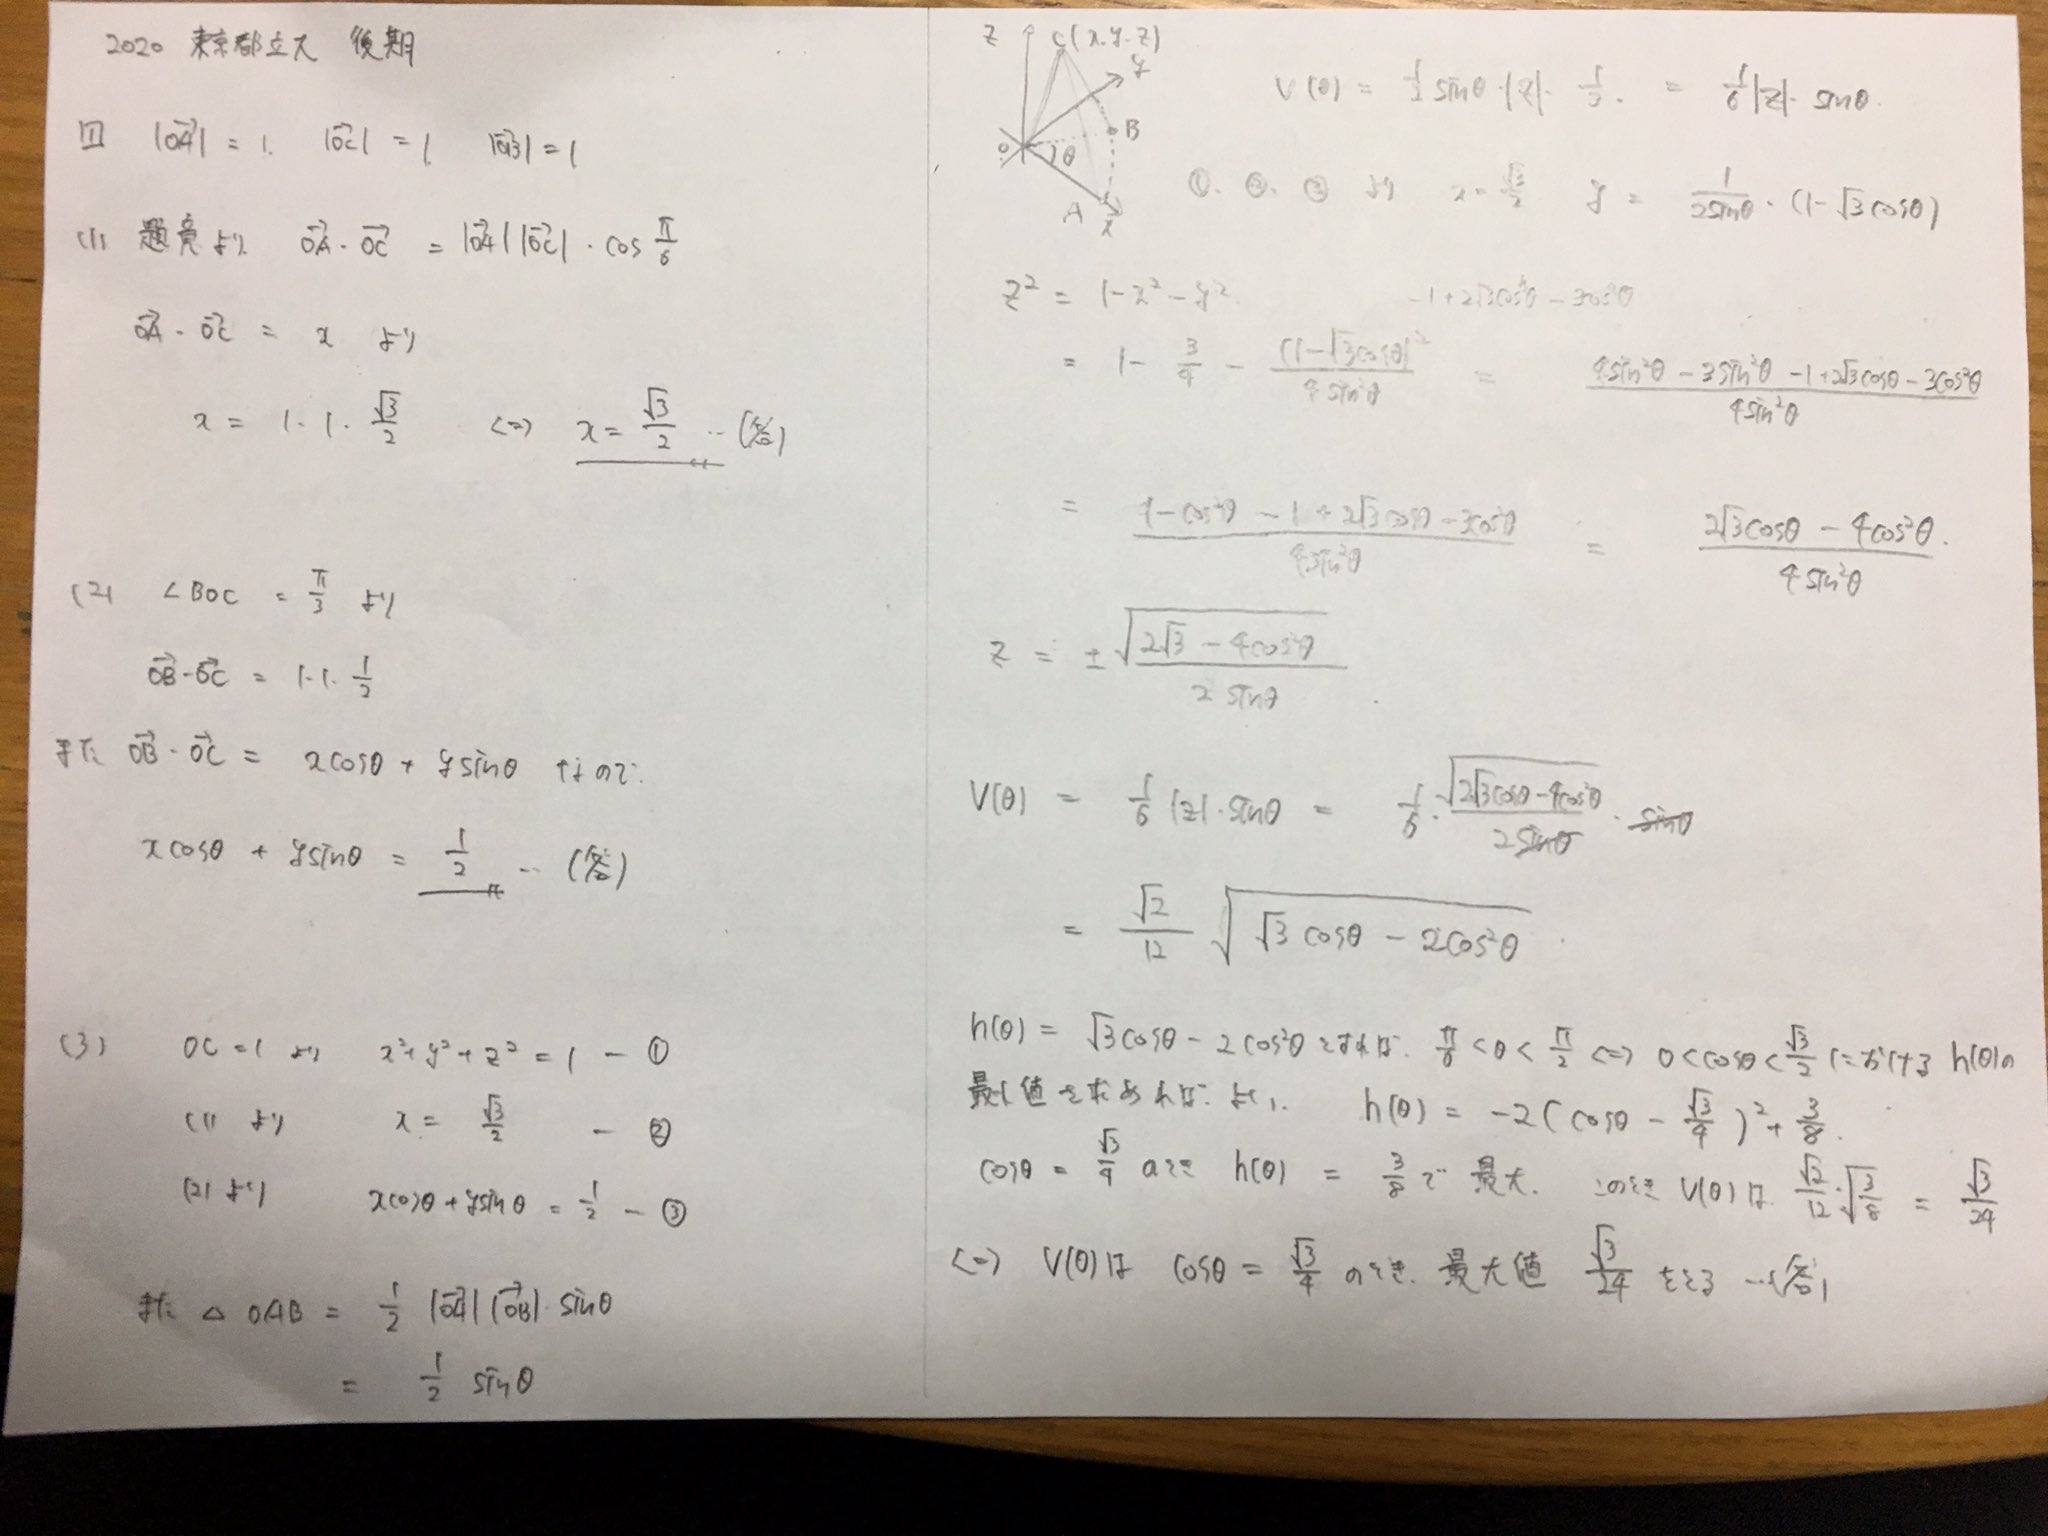 2020 東京都立大 後期
1 |OA→| = 1. |OC→| = 1. |OB→| = 1
(1) 題意より OA→・OC→ = |OA→||OC→|・cos π/6
OA→・OC→ = x より
x = 1・1・√3/2 <=> x = √3/2 …(答)
(2) ∠BOC = π/3 より
OB→・OC→ = 1・1・1/2
また OB→・OC→ = xcosθ + ysinθ なので
xcosθ + ysinθ = 1/2 …(答)
(3) OC = 1 より x²+y²+z² = 1 − ①
(1)より x = √3/2 − ②
(2)より xcosθ+ysinθ = 1/2 − ③
また △OAB = 1/2 |OA→||OB→|・sinθ
= 1/2 sinθ
z C(x.y.z) y B O θ A x
V(θ) = 1/2 sinθ・|z|・1/3. = 1/6|z|・sinθ.
①、②、③ より x = √3/2 y = 1/(2sinθ)・(1−√3cosθ)
z² = 1−x²−y².
−1+2√3cosθ−3cos²θ
= 1 − 3/4 − (1−√3cosθ)²/(4sin²θ) = (4sin²θ − 3sin²θ − 1 + 2√3cosθ − 3cos²θ)/(4sin²θ)
= (1−cos²θ − 1 + 2√3cosθ − 3cos²θ)/(4sin²θ) = (2√3cosθ − 4cos²θ)/(4sin²θ).
z = ±√(2√3 − 4cos²θ)/(2sinθ).
V(θ) = 1/6 |z|・sinθ = 1/6・√(2√3cosθ−4cos²θ)/(2sinθ)・sinθ
= √2/12 √(√3cosθ − 2cos²θ).
h(θ) = √3cosθ − 2cos²θ とすれば. π/6 < θ < π/2 <=> 0 < cosθ < √3/2 における h(θ)の
最大値を求めればよい. h(θ) = −2(cosθ − √3/4)² + 3/8.
cosθ = √3/4 のとき h(θ) = 3/8 で最大. このとき V(θ)は √2/12・√(3/8) = √3/24
<=> V(θ)は cosθ = √3/4 のとき. 最大値 √3/24 をとる …(答)